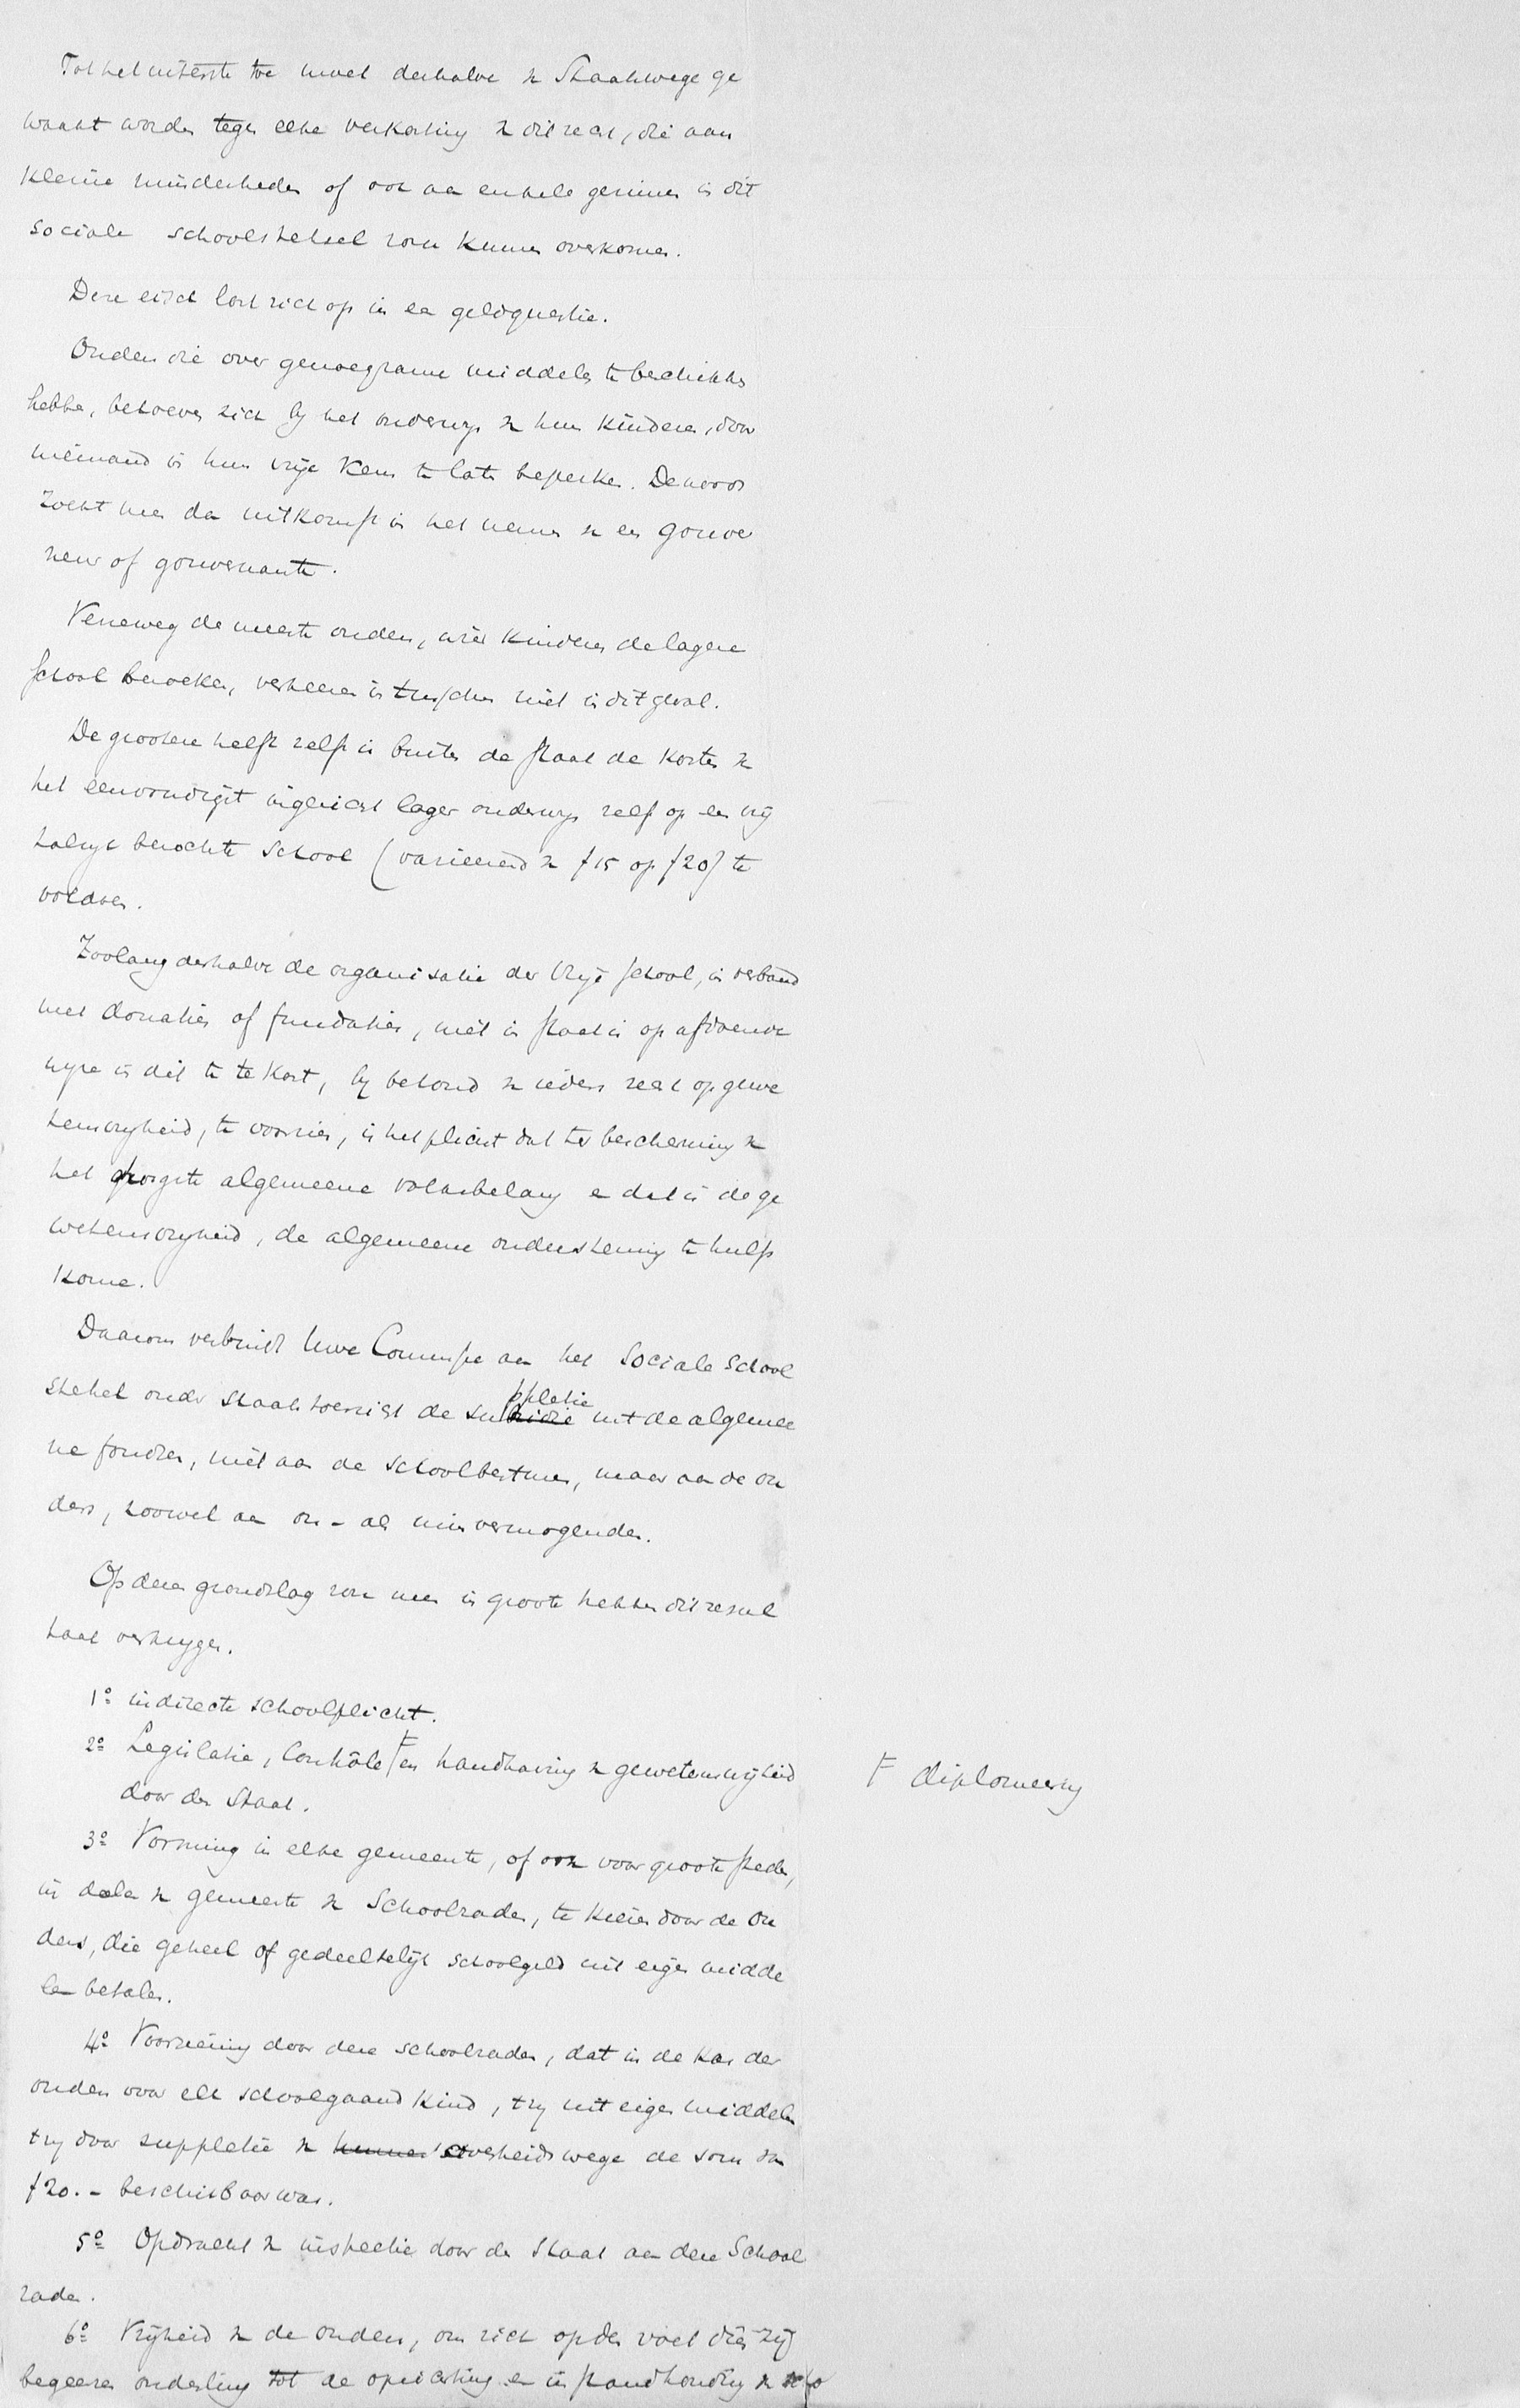 Tot het uiterste toe moet derhalve v. Staatswege ge
waakt worden tegen elke verkorting v. dit recht, die aan
kleine minderheden of ook aan enkele gezinnen in dit
sociale schoolstelsel zou kunnen overkomen.
Deze eisch lost zich op in een geldquestie.
Ouders die over genoegzame middelen te beschikken
hebben, behoeven zich bij het onderwijs v. hun kinderen, door
niemand in hun vrije keus te laten beperken. Desnoods
zoekt men dan uitkomst in het nemen v. een gouver
neur of gouvernante.
Verreweg de meeste ouders, wier kinderen de lagere
school bezoeken, verkeeren intusschen niet in dit geval.
De grootere helft zelfs is buiten de staat de kosten v.
het eenvoudigst ingericht lager onderwijs zelfs op een vrij
talrijk bezochte school (varieerend v. f15 op f20) te
voldoen.
Zoolang derhalve de organisatie der Vrije school, in verband
met donaties of fundaties, niet in staat is op afdoende
wijze in dit te kort, bij behoud v. ieders recht op gewe
tensvrijheid, te voorzien, is het plicht dat ter bescherming v.
het hoogste algemeene volksbelang en dat is de ge
wetensvrijheid, de algemeene ondersteuning te hulp
kome.
Daarom verbindt Uwe Commissie aan het Sociale School
stelsel onder staatstoezicht de suppletie uit de algemee
ne fondsen, niet aan de schoolbesturen, maar aan de ou
ders, zoowel aan on- als minvermogenden.
Op dezen grondslag zou men in groote trekken dit resul
taat verkrijgen.
1º indirecte schoolplicht.
2º Legislatie, Contrôle F en handhaving v. gewetensvrijheid
F diplomeering
door den Staat.
3º Vorming in elke gemeente, of ook voor groote steden,
in deelen v. gemeente v. Schoolraden, te kiezen door de Ou
ders, die geheel of gedeeltelijk schoolgeld uit eigen midde
len betalen.
4º Voorziening door deze schoolraden, dat in de kas der
ouders voor elk schoolgaand kind, tzij uit eigen middelen
tzij door suppletie v. overheidswege de som van
f20.- beschikbaar was.
5º Opdracht v. inspectie door den Staat aan deze School
raden.
6º Vrijheid v. de ouders, om zich op den voet dien zij
begeeren onderling tot de oprichting en in standhouding v.